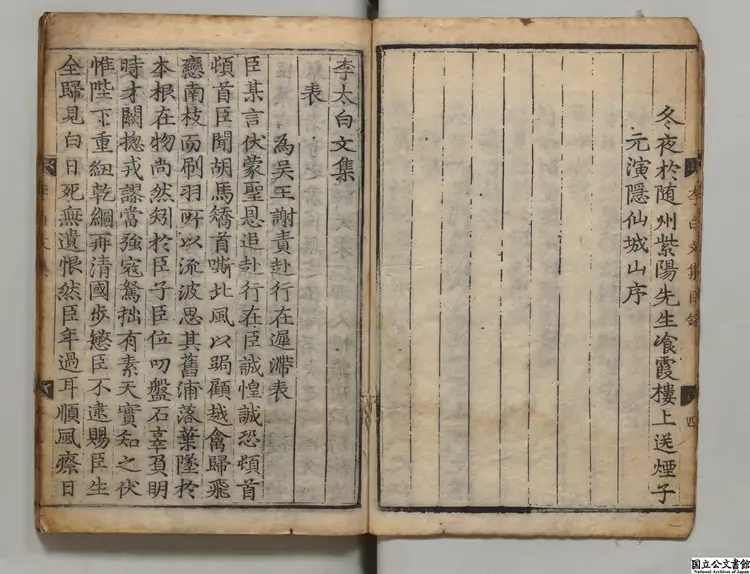 李白文集目錄
四
冬夜於随州紫陽先生飡霞樓上送煙子
元演隱仙城山序
李太白文集
表
為吳王謝責赴行在遲滯表
臣某言伏蒙聖恩追赴行在臣誠惶誠恐頓首
頓首臣聞胡馬矯首嘶北風以跼顧越禽歸飛
戀南枝而刷羽所以流波思其舊浦落葉墜於
本根在物尚然矧於臣子臣位叨盤石辜負明
時才闕摠戎謬當強寇駑拙有素天實知之伏
惟陛下重紐乾綱再清國步愍臣不逮賜臣生
全歸見白日死無遺恨然臣年過耳順風瘵日
国立公文書館
National Archives of Japan